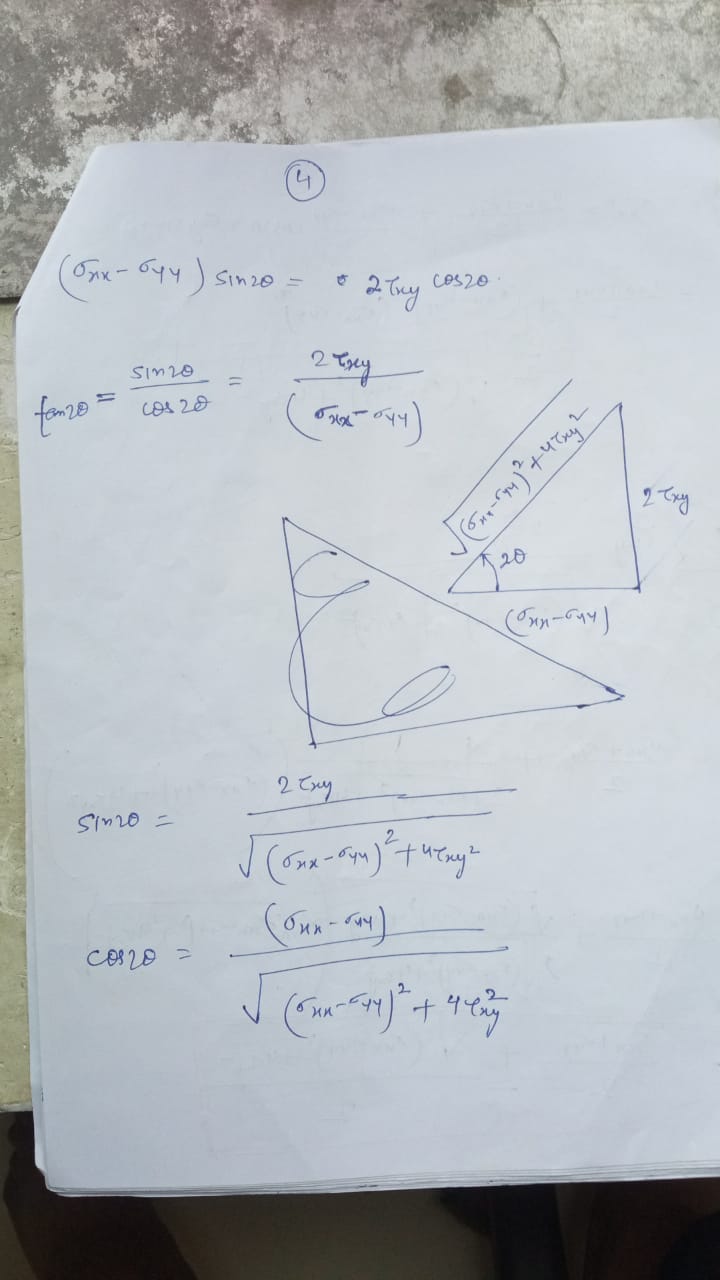 4
(σxx - σyy) sin2θ = 2 τxy cos2θ.
tan2θ = sin2θ / cos2θ = 2 τxy / (σxx - σyy)
√(σxx - σyy)² + 4τxy²
2 τxy
2θ
(σxx - σyy)
sin2θ = 2 τxy / √(σxx - σyy)² + 4τxy²
cos2θ = (σxx - σyy) / √(σxx - σyy)² + 4τxy²